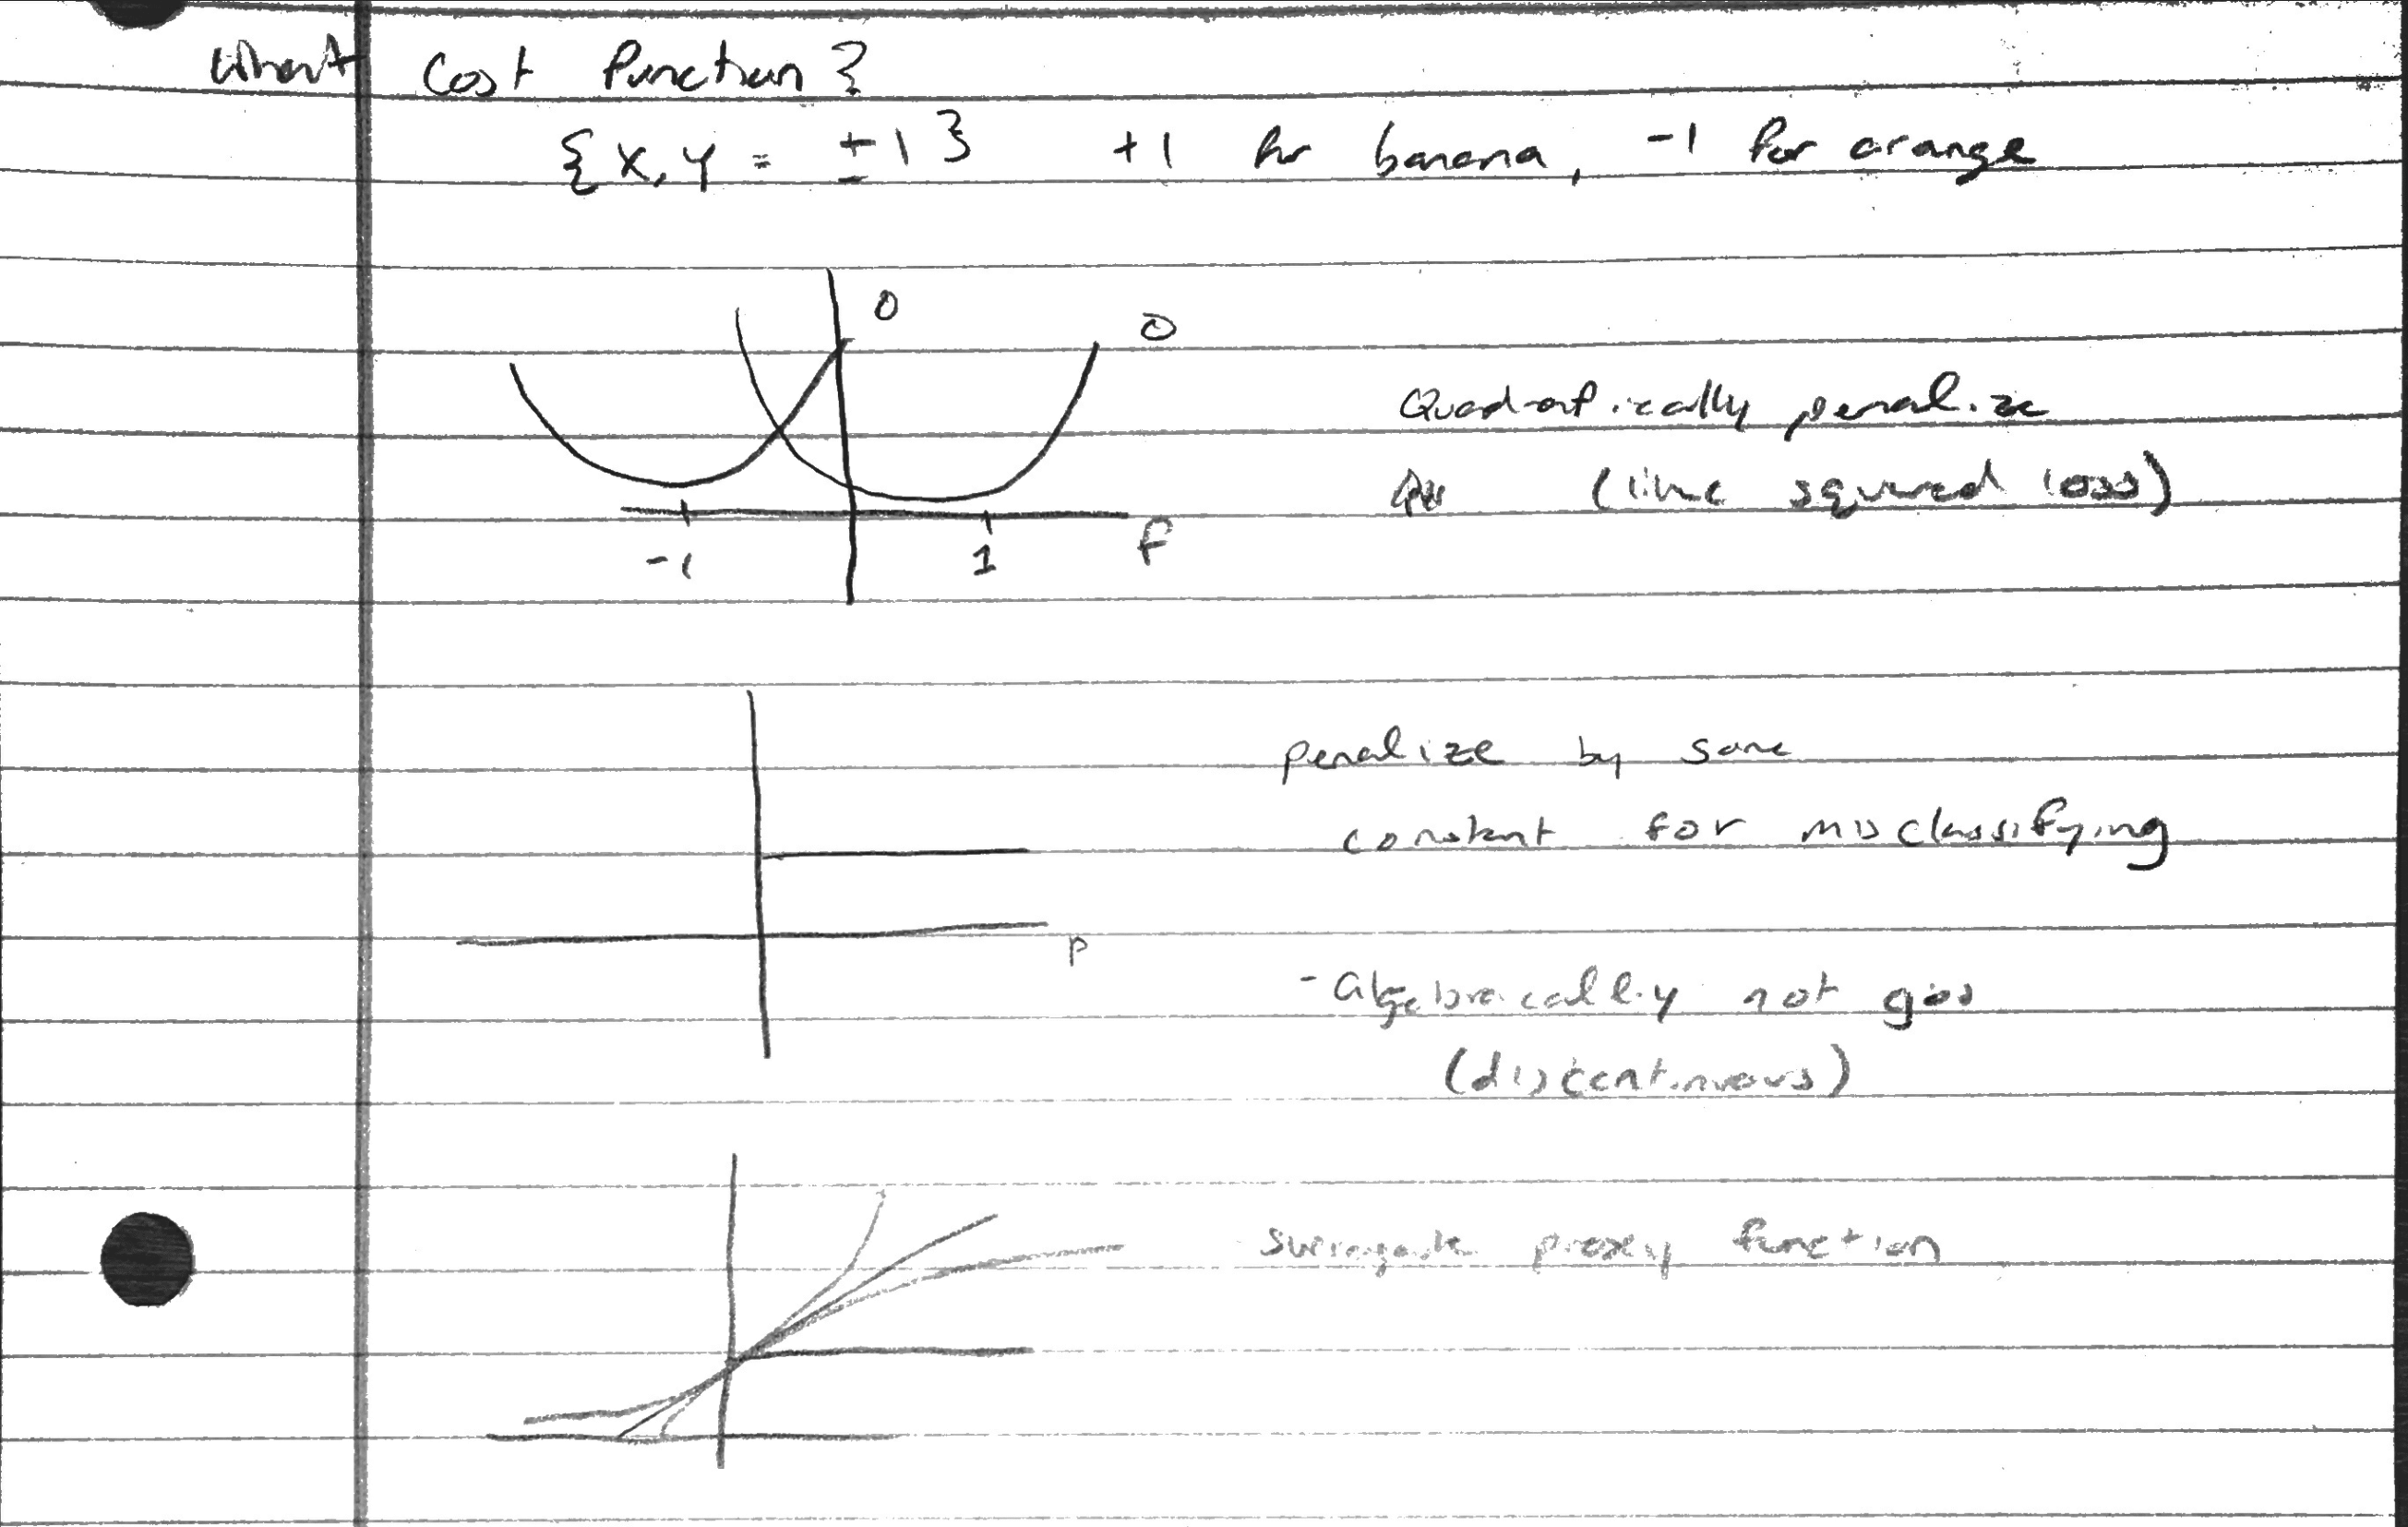 What Cost function?
{X, Y = ±1} +1 for banana, -1 for orange
0
0
Quadratically penalize
(like squared loss)
-1 1 f
penalize by same
constant for misclassifying
- Algebraically not good
(discontinuous)
surrogate proxy function